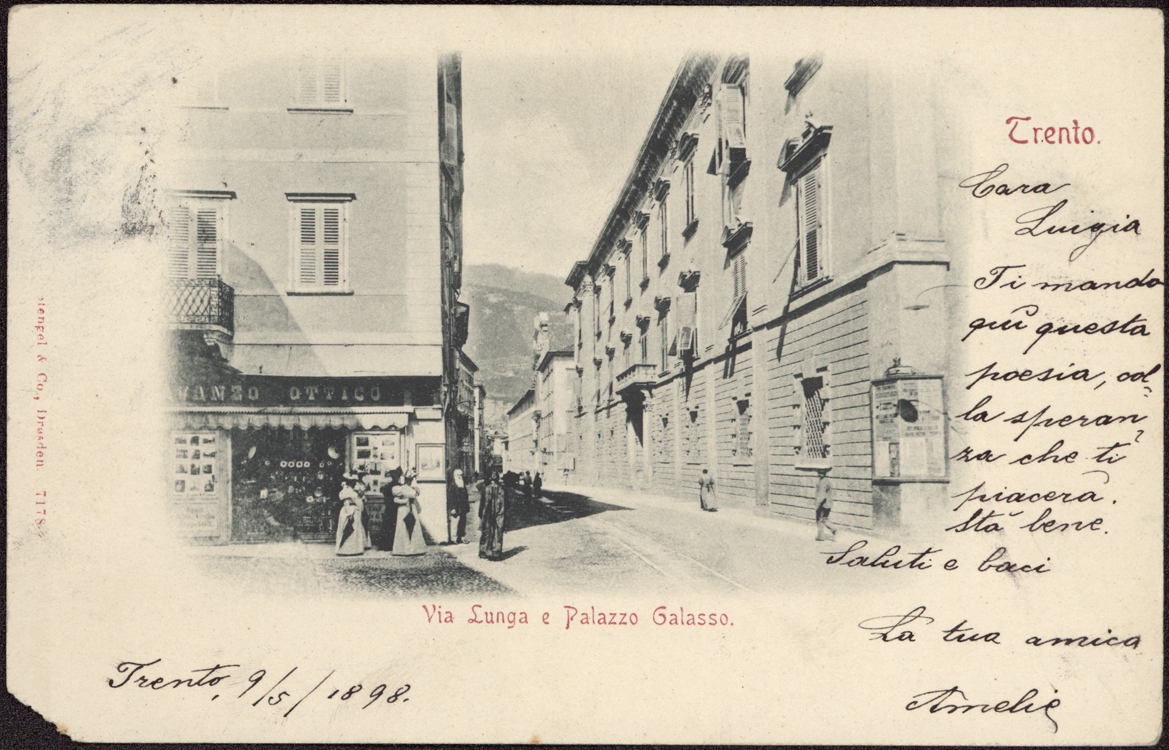 Trento.
Cara
Luigia
Ti mando
qui questa
poesia, col-
la speran
za che ti
piacerà.
stà bene.
Saluti e baci
La tua amica
Amelie
NANZO OTTICO
Via Lunga e Palazzo Galasso.
Trento, 9/5/1898.
Stengel & Co., Dresden 7178